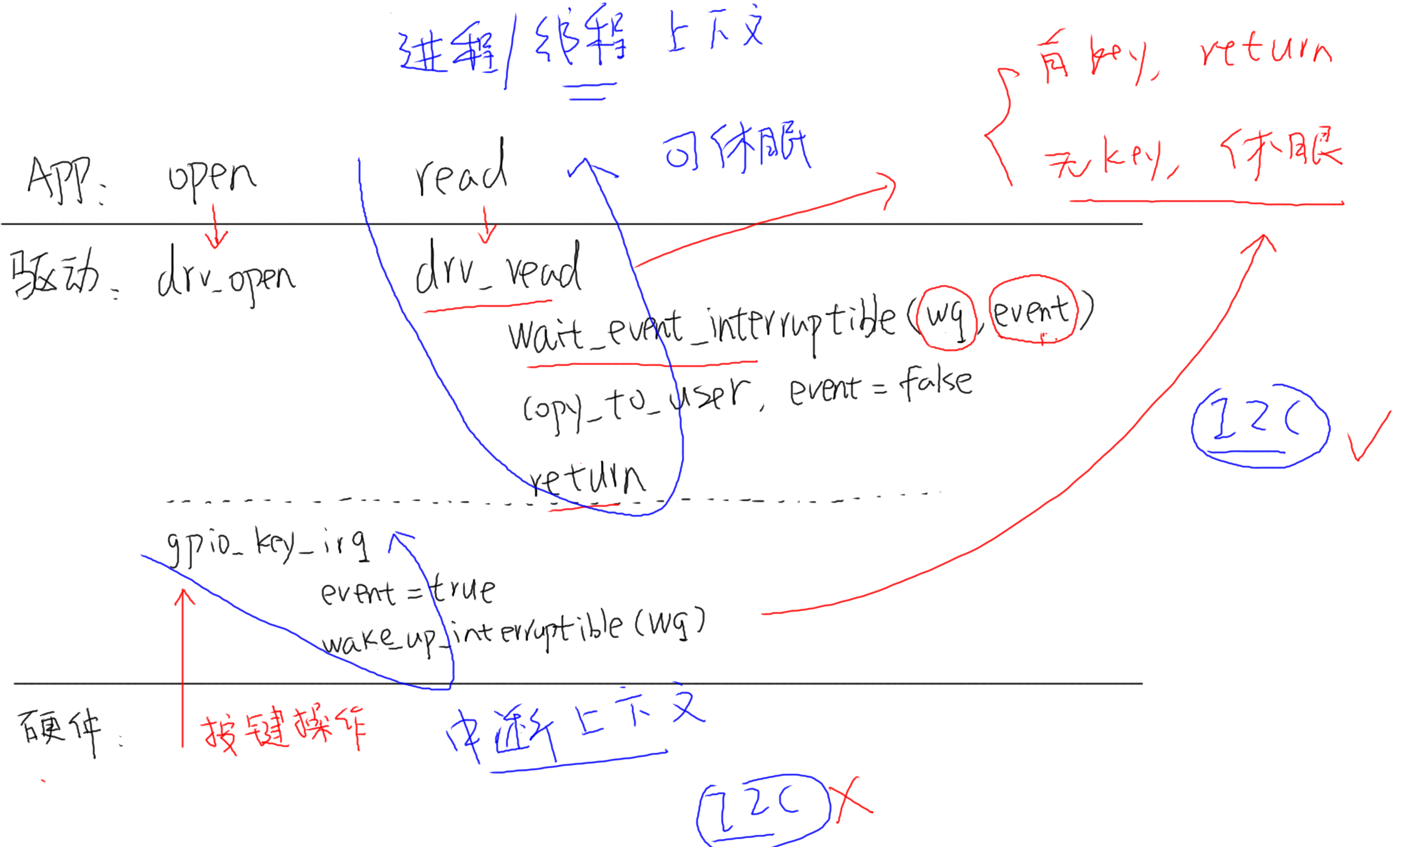 进程/线程 上下文
有key, return
可休眠
无key, 休眠
APP: open read
驱动: drv_open drv_read
wait_event_interruptible(wq, event)
copy_to_user, event = false
I2C
return
gpio_key_irq
event = true
wake_up_interruptible(wq)
硬件: 按键操作
中断上下文
I2C